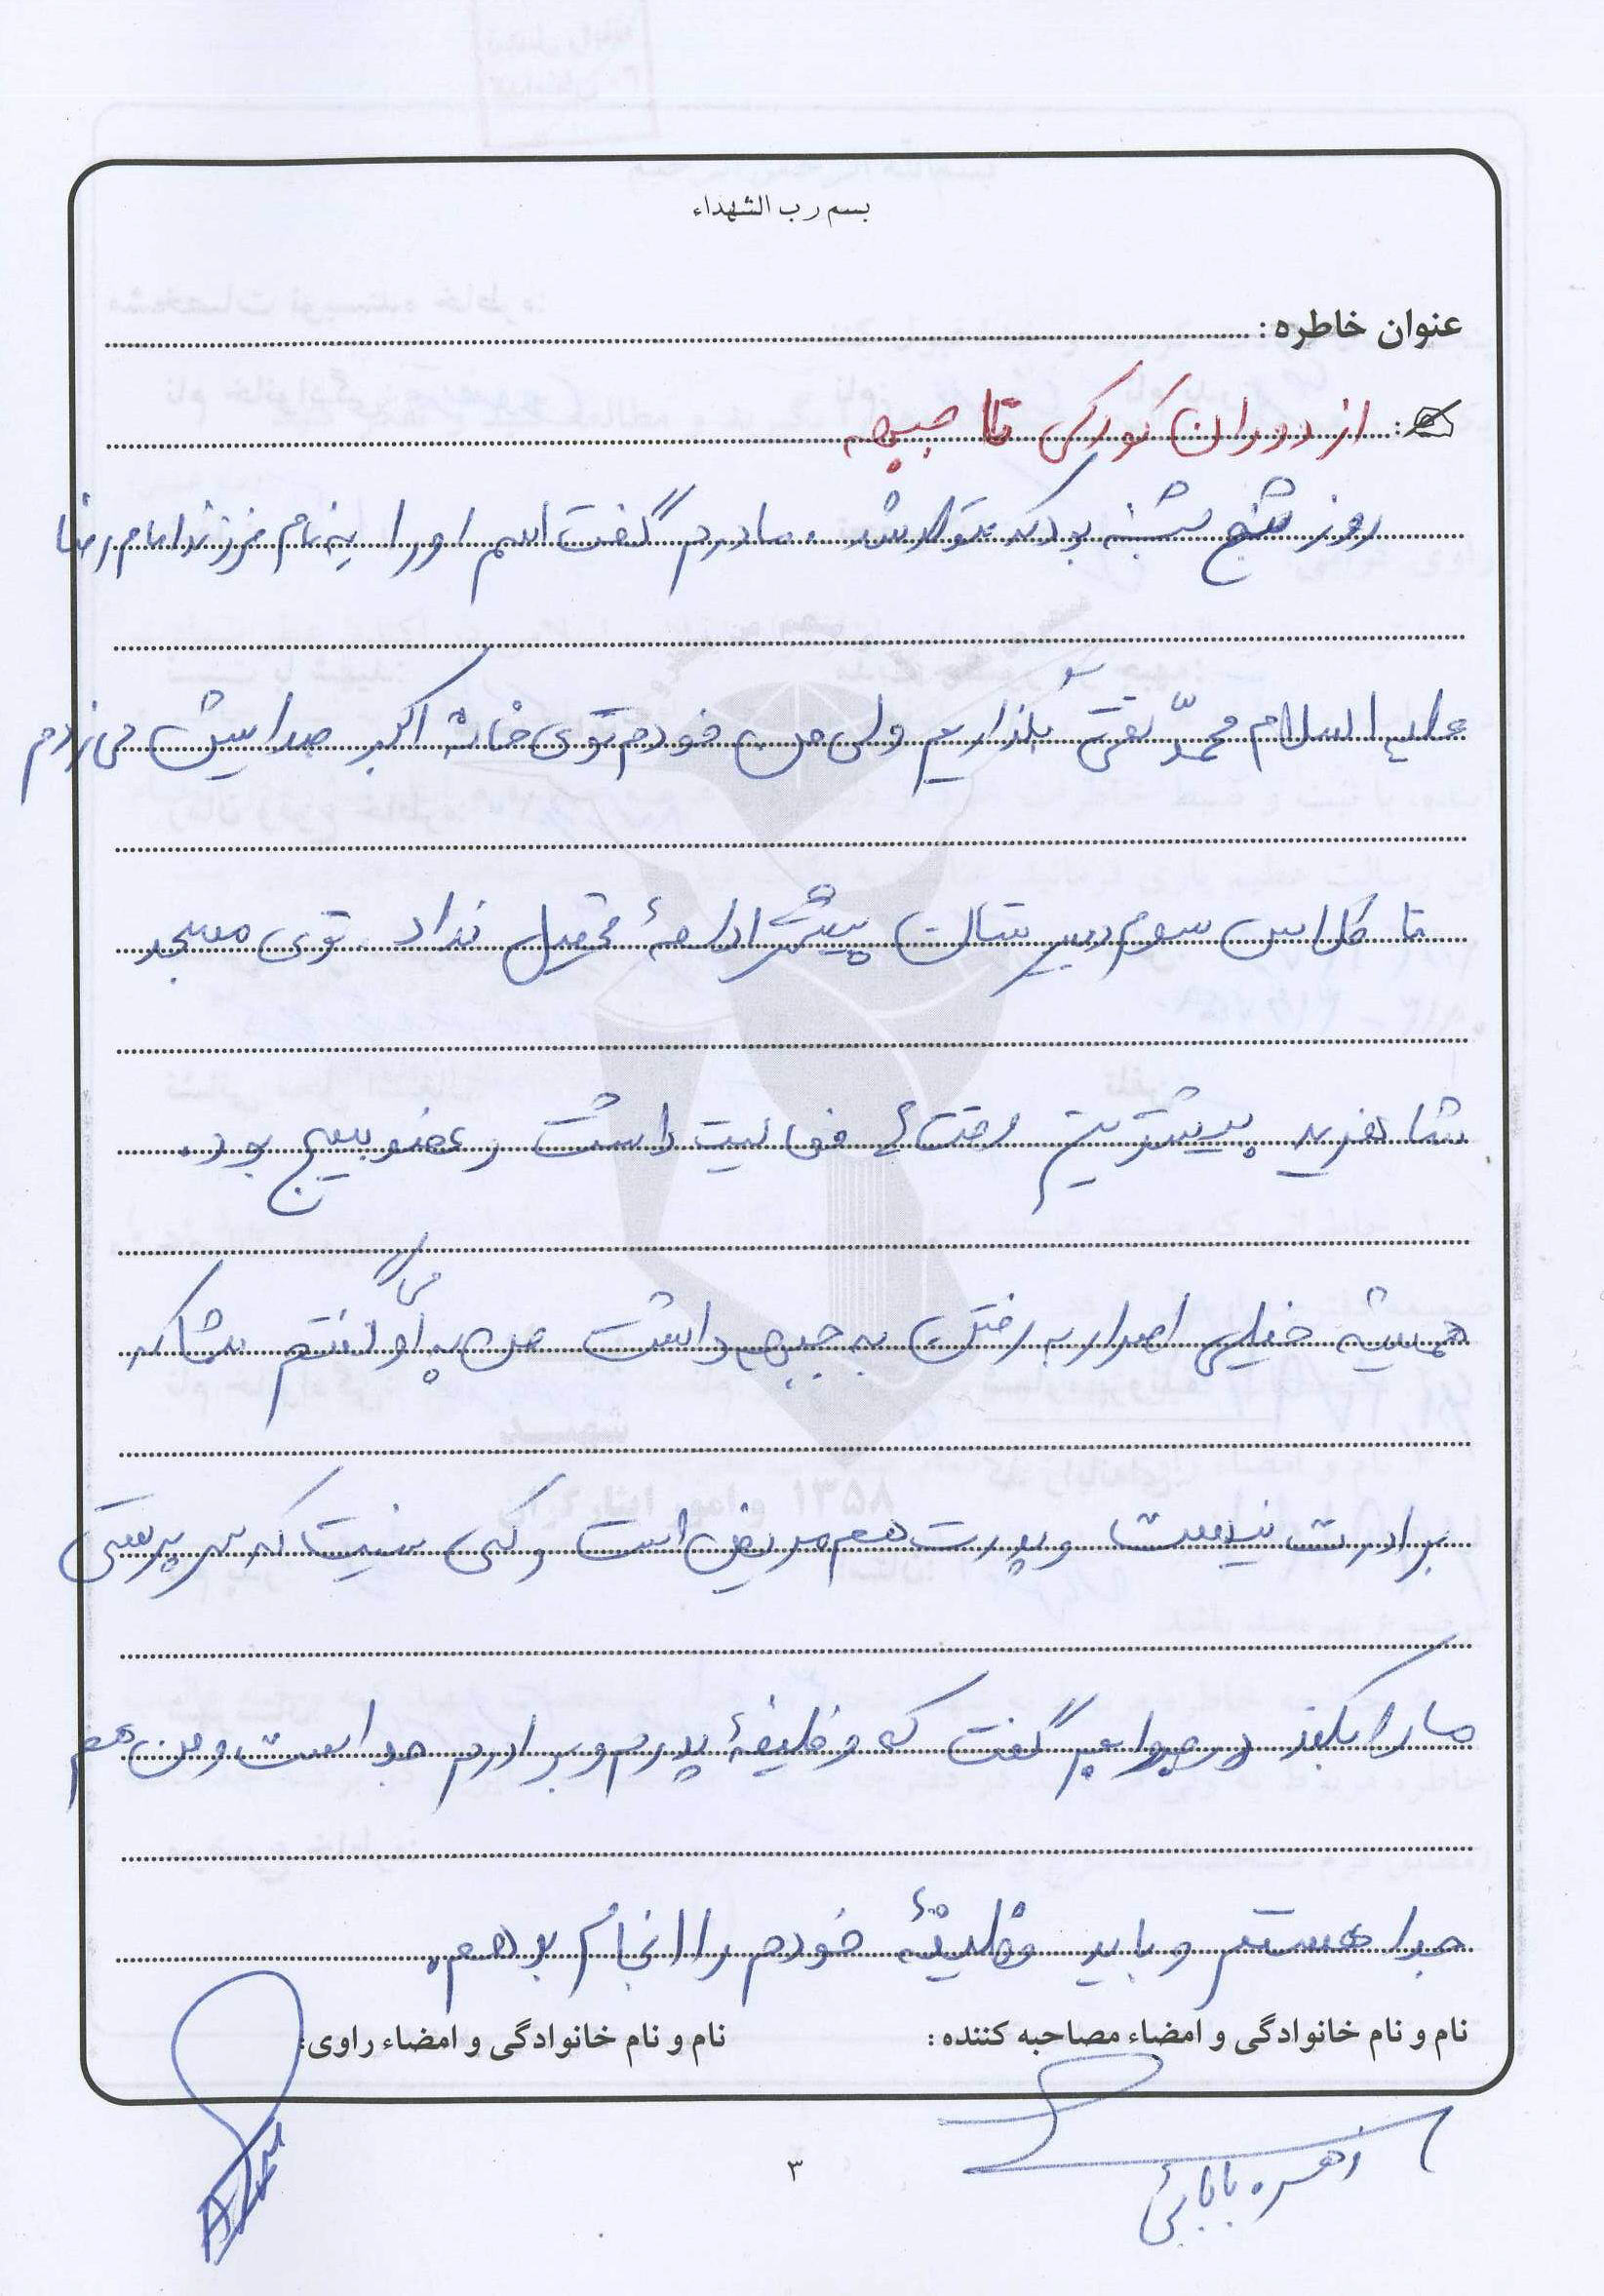 بسم رب الشهداء
عنوان خاطره :
از دوران کودکی تا جبهه
روز پنج شنبه بود که متولد شد ، مادرم گفت اسم او را به نام فرزند امام رضا
علیه السلام محمّد تقی بگذاریم ولی من خودم توی خانه اکبر صدایش می زدم
تا کلاس سوم دبیرستان بیشتر ادامهٔ تحصیل نداد . توی مسجد
شاهزید بیشترین وقت فعالیت داشت و عضو بسیج بود .
همیشه خیلی اصرار به رفتن به جبهه داشت من به او می گفتم شما که
برادرت نیست و پدرت هم مریض است و کسی نیست که سرپرستی
ما را بکند در جوابم گفت که وظیفهٔ پدرم و برادرم جدا است و من هم
جدا هستم و باید وظیفهٔ خودم را انجام بدهم .
نام و نام خانوادگی و امضاء مصاحبه کننده : نام و نام خانوادگی و امضاء راوی:
زهره بابائی
۳